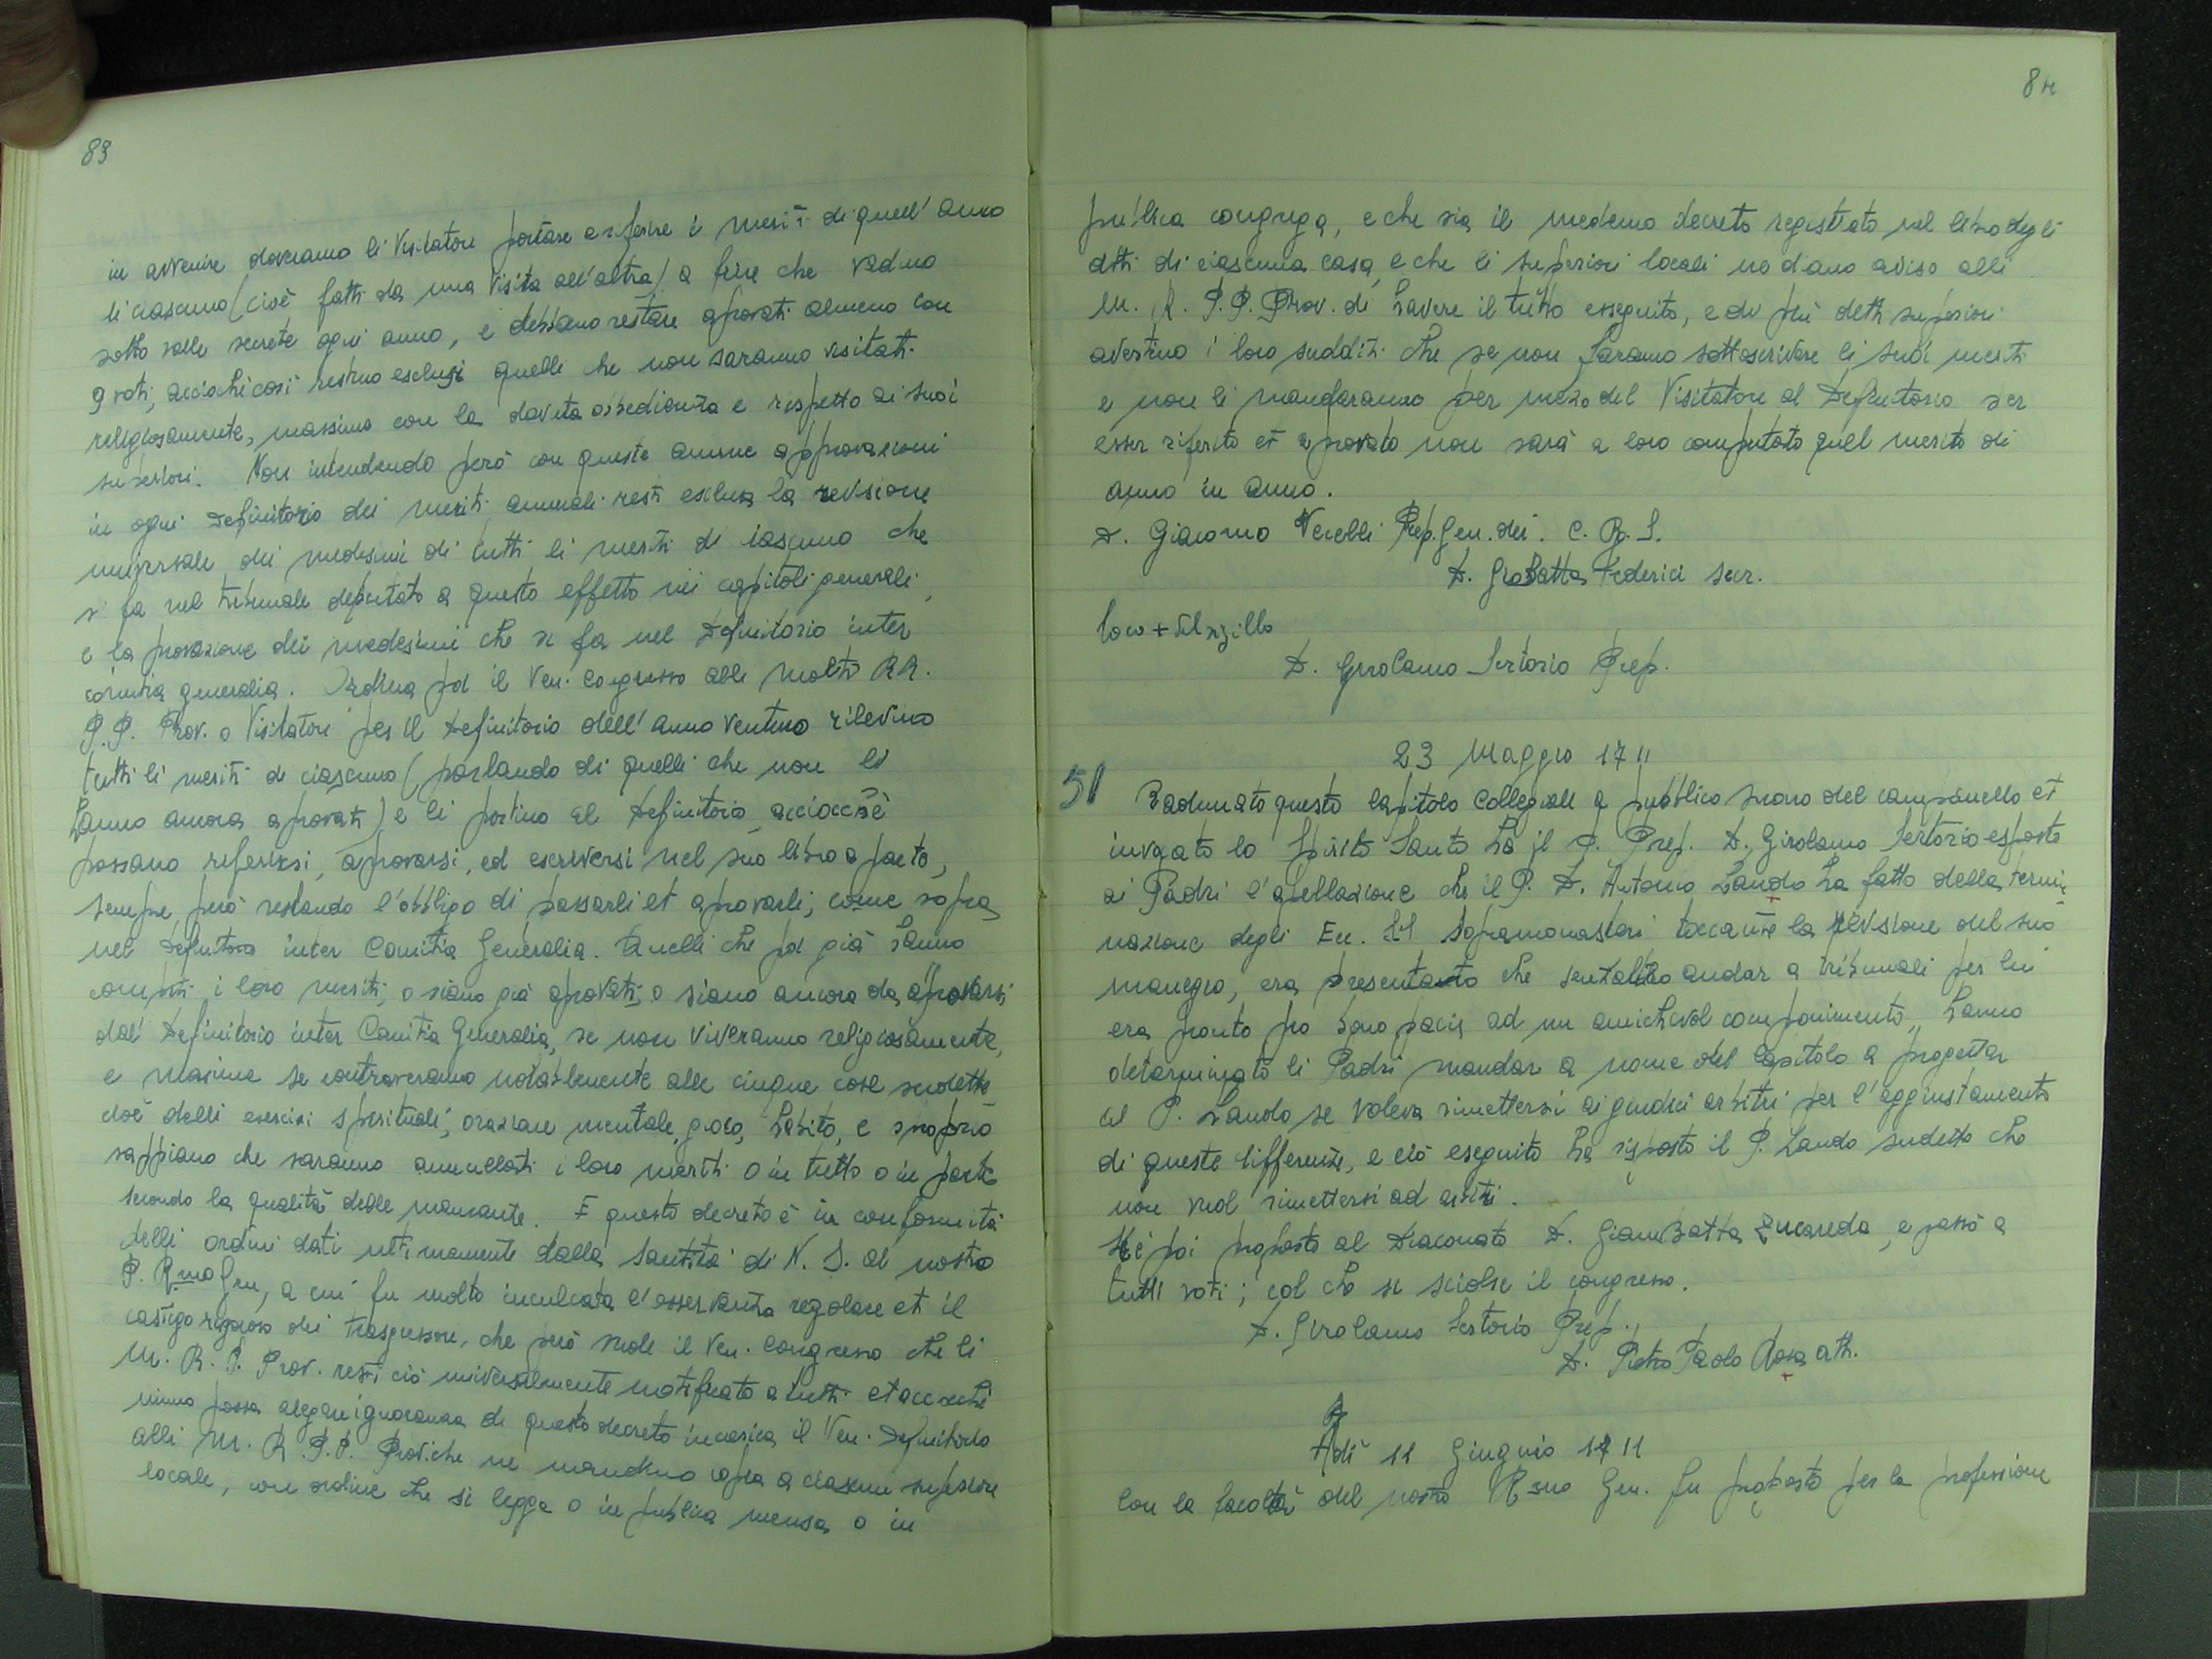 83
in avvenire doveranno li Visitatori portare e riferire i meriti di quell'anno
di ciascuno (cioè fatti da una Visita all'altra) a fine che vadino
sotto salle secrete ogni anno, e debbano restare aprovati almeno con
9 voti, acciochè così restino esclusi quelli che non saranno visitati
religiosamente, massime con la dovuta obbedienza e rispetto ai suoi
superiori. Non intendendo però con queste annue approvazioni
in ogni Definitorio dei meriti annuali resti esclusa la revisione
universale dei medesimi di tutti li meriti di ciascuno che
si fa nel tribunale deputato a questo effetto nei capitoli generali,
e la provazione dei medesimi che si fa nel Definitorio inter
comitia generalia. Ordina poi il Ven. Congresso alli molto RR.
P.P. Prov. o Visitatori per il Definitorio dell'anno venturo rilevino
tutti li meriti di ciascuno (parlando di quelli che non li
hanno ancora aprovati) e li portino al Definitorio, acciocchè
possano riferirsi, aprovarsi, ed escriversi nel suo libro a parte,
sempre però restando l'obbligo di passarli et aprovarli, come sopra
nel Definitorio inter Comitia Generalia. Quelli che poi già hanno
compiti i loro meriti, o siano già aprovati, o siano ancora da aprovarsi
dal Definitorio inter Comitia Generalia, se non viveranno religiosamente,
e maxime se contraveranno notabilmente alle cinque cose sudette
cioè delli esercizi spirituali, orazione mentale, gioco, habito, e proprio
sappiano che saranno annullati i loro meriti o in tutto o in parte
secondo la qualità delle mancante. E questo decreto è in conformità
delli ordini dati ultimamente dalla Santità di N. S. al nostro
P. Rmo Gen, a cui fu molto inculcata l'osservanza regolare et il
castigo rigoroso dei trasgressori, che però vuole il Ven. Congresso che li
M. R. P. Prov. resti ciò universalmente notificato a tutti et accioché
niuno possa allegare ignoranza di questo decreto incarica il Ven. Definitorio
alli M. R. P.P. Prov. che ne mandino copia a ciascun superiore
locale, con ordine che si legga o in publica mensa o in
84
publica congrega, e che sia il medemo decreto registrato nel libro degli
atti di ciascuna casa, e che li superiori locali ne diano aviso alli
M. R. P.P. Prov. di havere il tutto esseguito, e di più detti superiori
avertino i loro sudditi che se non faranno sottoscrivere li suoi meriti
e non li mandaranno per mezo del Visitatore al Definitorio per
esser riferito et aprovato non sarà a loro computato quel merito di
anno in anno.
D. Giacomo Vecelli Prep. Gen. dei C. R. S.
D. GioBatta Federici Secr.
loco + del sigillo
D. Girolamo Sertorio Prep.
23 Maggio 1711
51 Radunato questo Capitolo Collegiale a pubblico suono del campanello et
invocato lo Spirito Santo ha il P. Prep. D. Girolamo Sertorio esposto
ai Padri l'apellazione che il P. D. Antonio Lando ha fatto della termi-
nazione degli Ecc. SS Sopramonasteri toccante la revisione del suo
manegio, era presentanto che senz'altro andar a tribunali per lui
era pronto pro bono pacis ad un amichevol componimento, hanno
determinato li Padri mandar a nome del Capitolo a progettar
al P. Lando se voleva rimettersi ai giudici arbitri per l'aggiustamento
di queste differenze, e ciò eseguito ha risposto il P. Lando sudetto che
non vuol rimettersi ad arbitri.
Si è poi proposto al Diaconato D. GiamBatta Zucareda, e passò a
tutti voti; col che si sciolse il congresso.
D. Girolamo Sertorio Prep.
D. Pietro Paolo Rosa att.
Adì 11 Giugnio 1711
Con la facoltà del nostro Rmo Gen. fu proposto per la professione